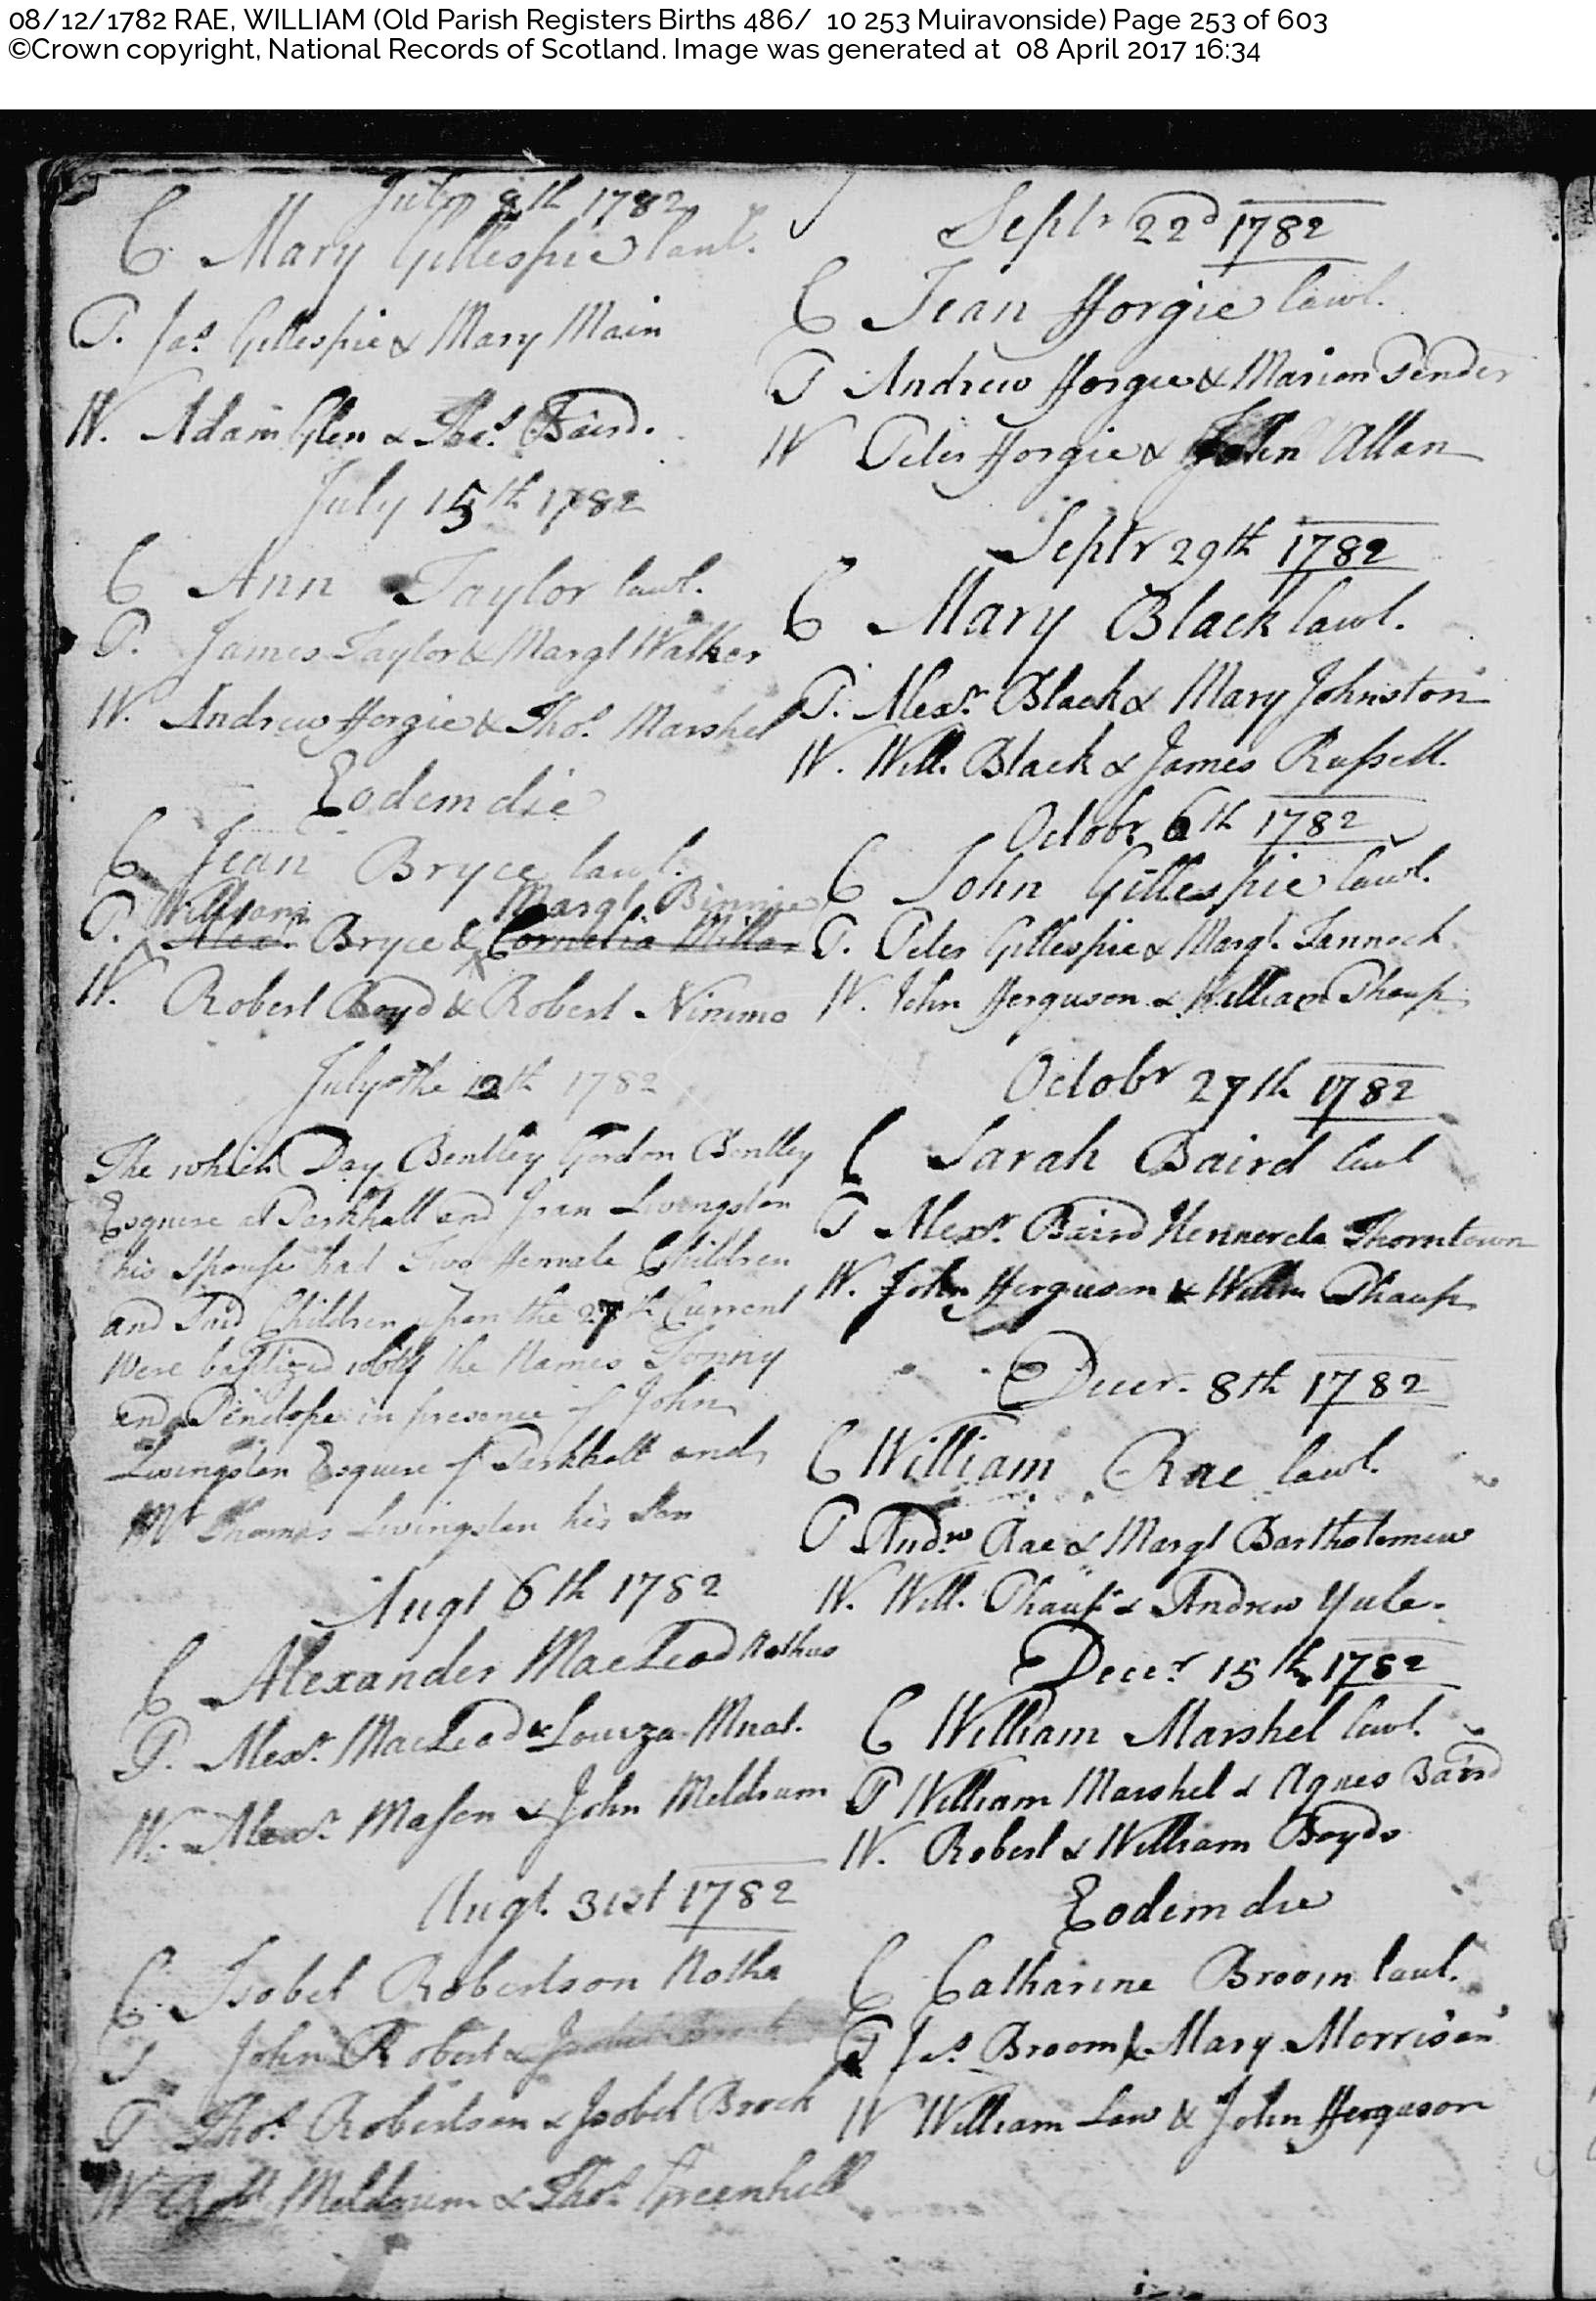 08/12/1782 RAE, WILLIAM (Old Parish Registers Births 486/ 10 253 Muiravonside) Page 253 of 603
©Crown copyright, National Records of Scotland. Image was generated at 08 April 2017 16:34
July 8th 1782
C Mary Gillespie lawl.
P. Jas. Gillespie & Mary Main
W. Adam Glen & Thos. Baird.
July 15th 1782
C Ann Taylor lawl.
P. James Taylor & Margt Walker
W. Andrew fforgie & Thos. Marshel
Eodem die
C Jean Bryce lawl.
William Margt. Binnie
P. Alexr. Bryce & Cornelia Millar
W. Robert Boyd & Robert Nimmo
July the 12th 1782
The which Day Bentley Gordon Bentley
Esquire at Parkhall and Jean Livingston
his Spouse had Two ffemale Children
and Said Children upon the 27th Current
Were baptized the Names
and Penelope in presence of John
Livingston Esquire of Parkhall and
Mr Thomas Livingston his Son
Augt 6th 1782
C Alexander MacLeod Nothus
P. Alexr. MacLeod & Louza
W. Alexr. Mason & John Meldrum
Augt. 31st 1782
C. Isobel Robertson Notha
P John Robert &
P Thos. Robertson & Isobel Brock
W Robt. Meldrum & Thos. Greenhill
Septr 22d 1782
C Jean fforgie lawl.
P Andrew fforgie & Marion Pender
W Peter fforgie & John Allan
Septr 29th 1782
C Mary Black lawl.
P. Alexr. Black & Mary Johnston
W. Will. Black & James Russell.
Octobr. 6th 1782
C John Gillespie lawl.
P. Peter Gillespie & Margt. Tannoch
W. John fferguson & William Shaup
Octobr 27th 1782
C Sarah Baird lawl
P Alexr. Baird Thorntown
W. John fferguson & Willm Shaup
Decer. 8th 1782
C William Rae lawl.
P Andw. Rae & Margt Bartholomew
W. Will. Shaup & Andrew Yule.
Decer. 15th 1782
C William Marshel lawl.
P William Marshel & Agnes Baird
W. Robert & William Boyds
Eodem die
C Catharine Broom lawl.
P Jas. Broom & Mary Morrison
W William Law & John fferguson